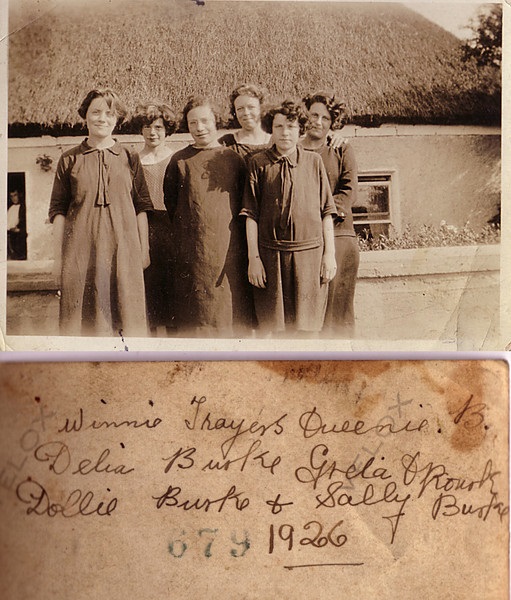 Winnie Trayers Queenie. B.
Delia Burke Greta O'Rourk
Dollie Burke & Sally Burke
679 1926
VELOX
VELOX